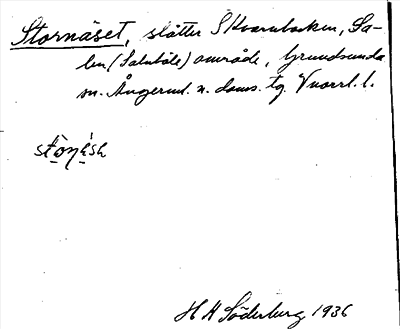 Stornäset, slåtter S Kvarnbacken, Sa-
len (Salnböle) område, Grundsunda
sn. Ångerml. n. doms. tg. Vnorrl. l.
H H Söderburg 1936